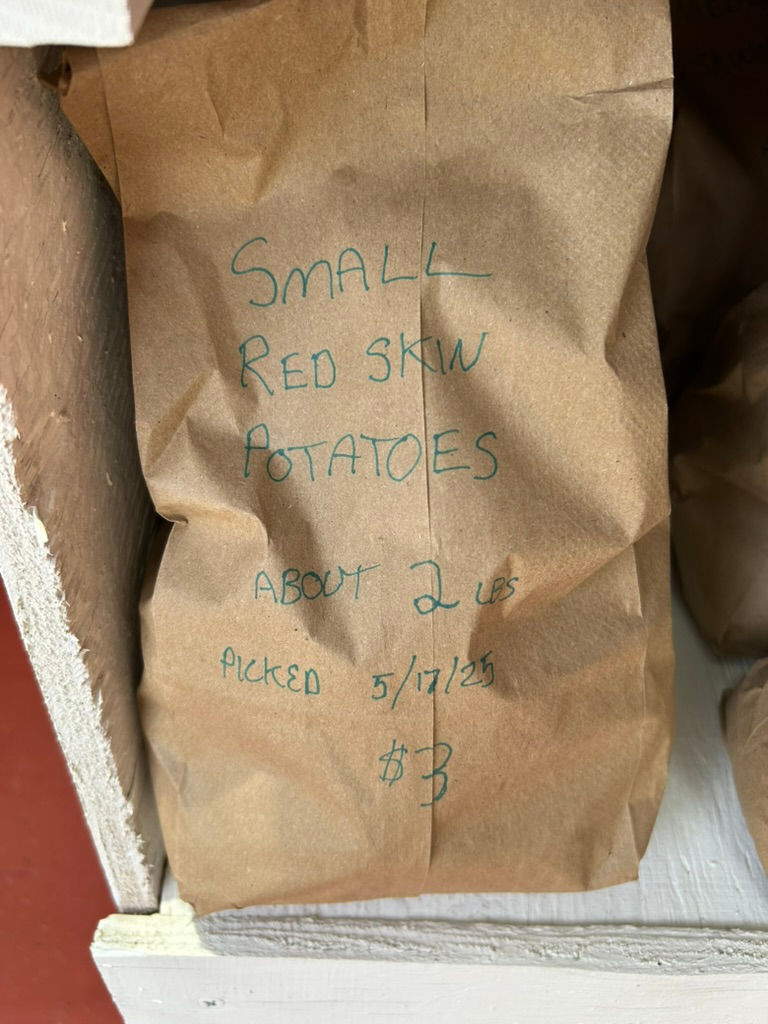 SMALL
RED SKIN
POTATOES
ABOUT 2 LBS
PICKED 5/17/25
$3